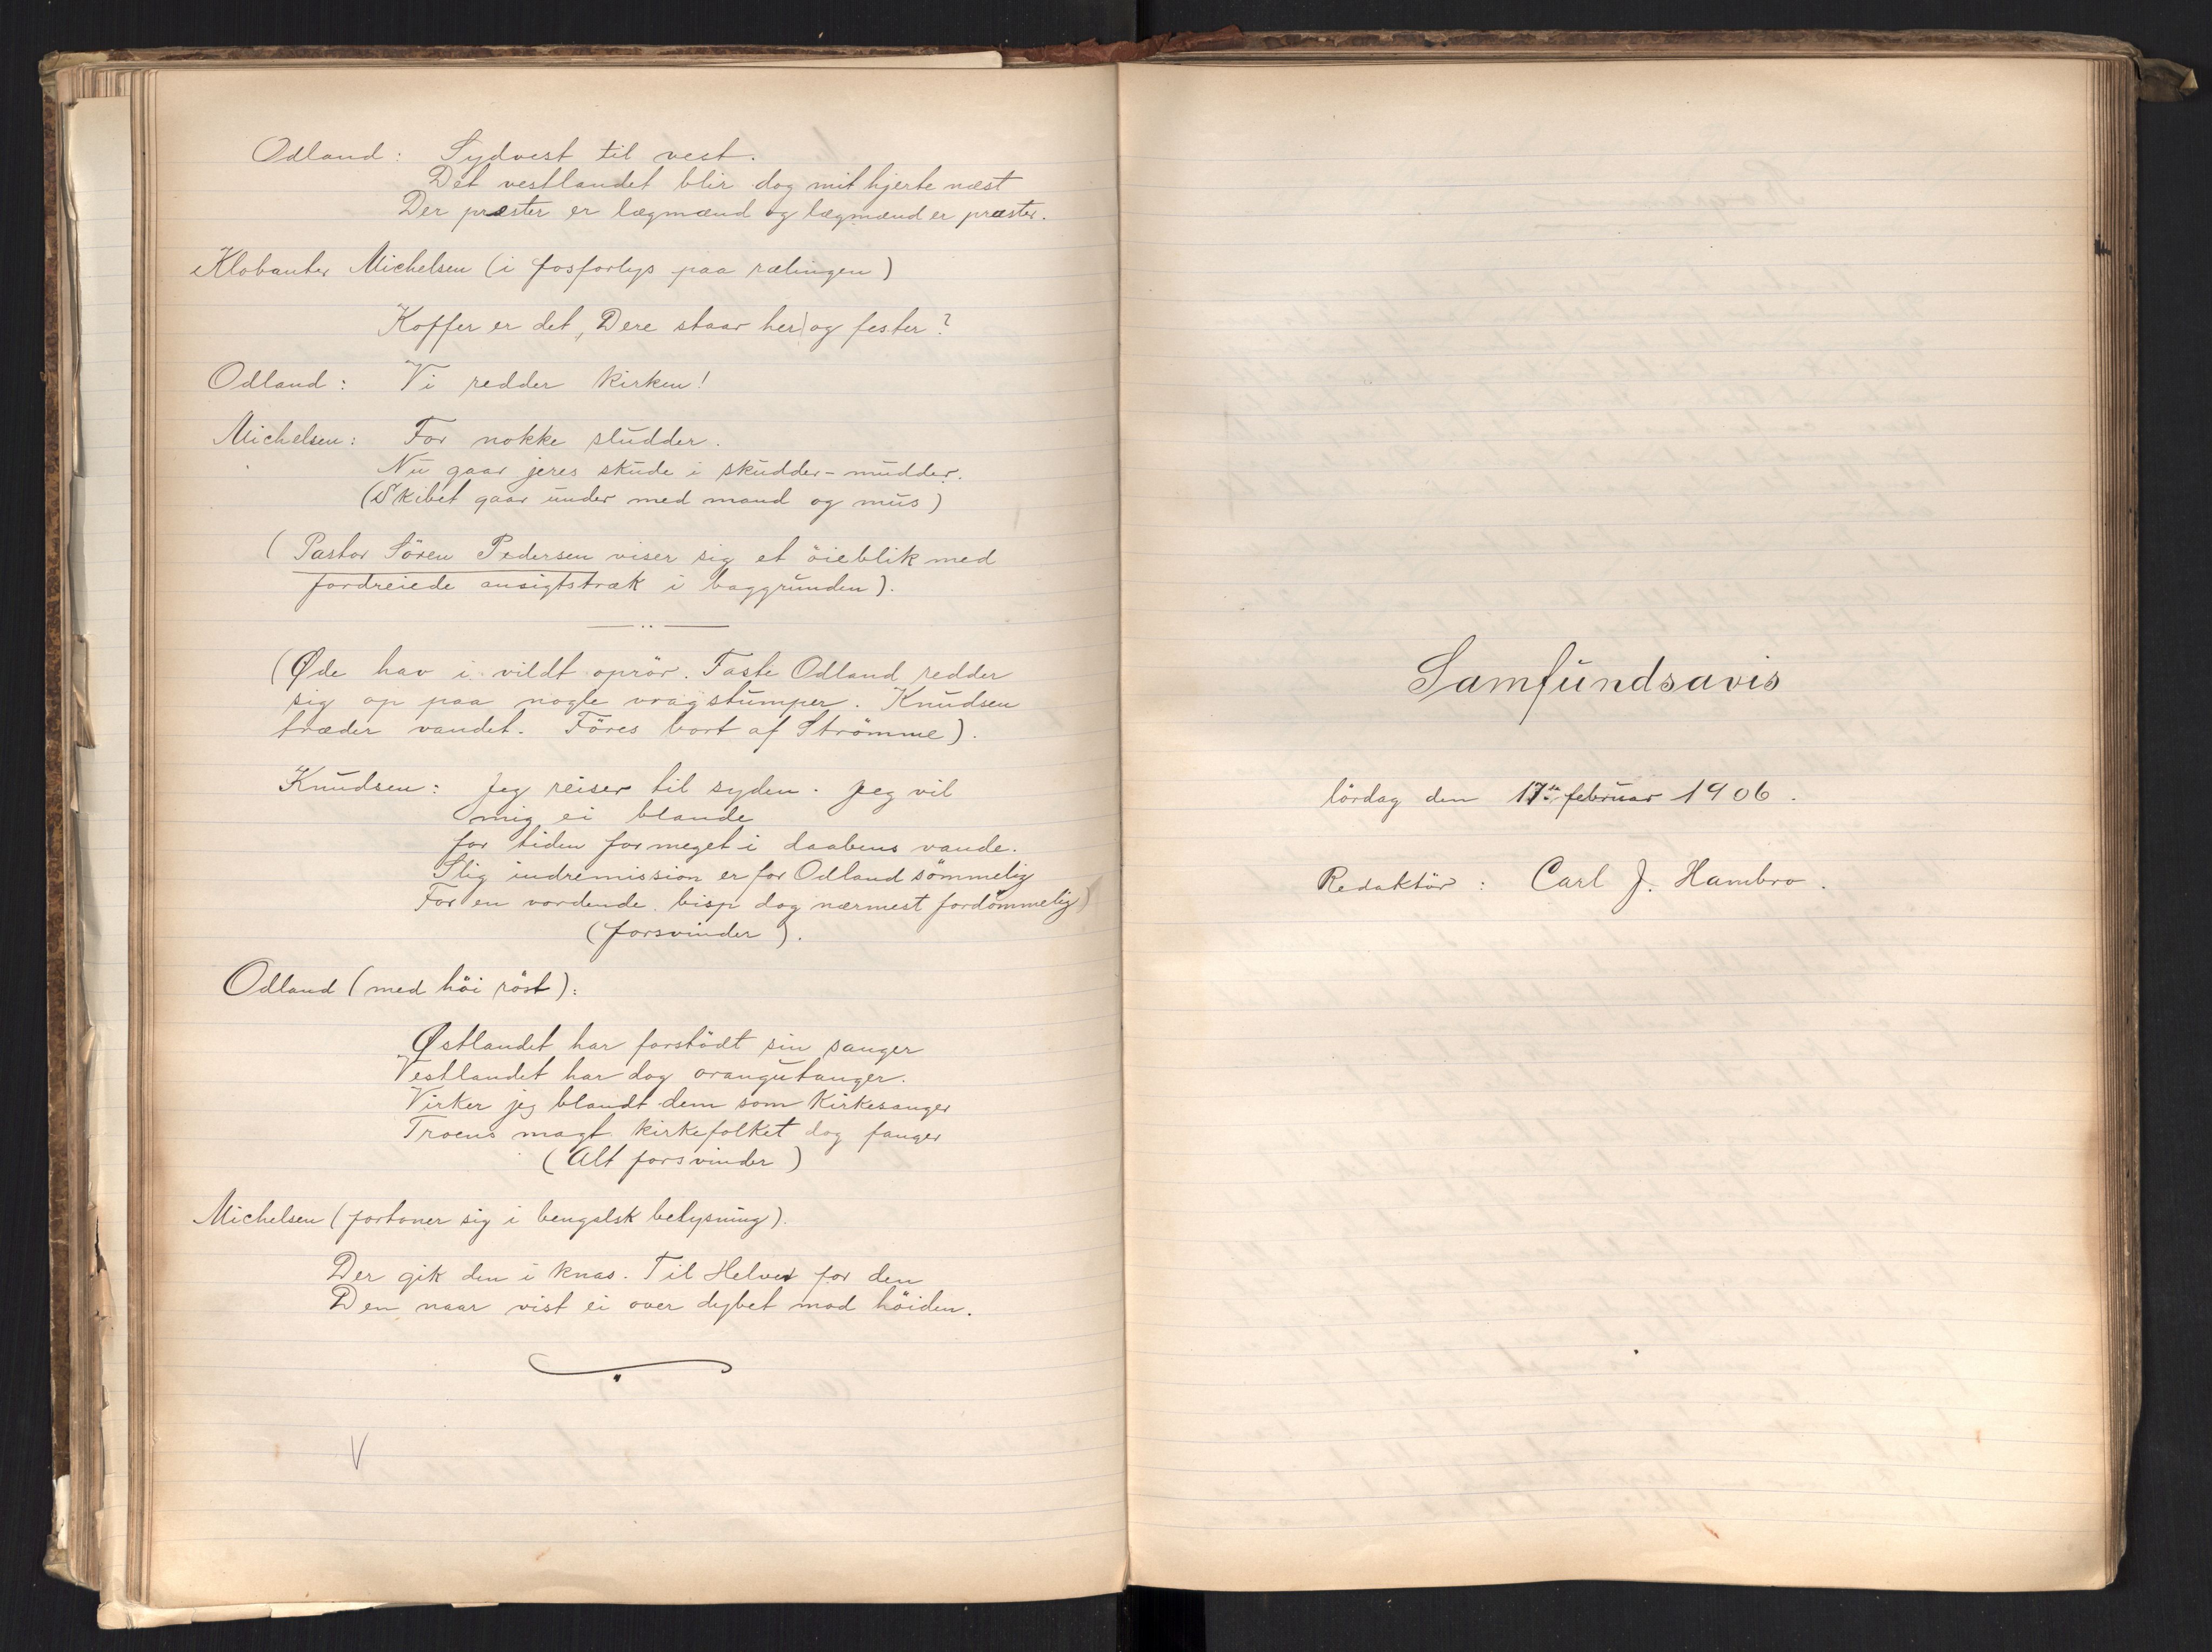 Odland: Sydvest til vest.
Det vestlandet blir dog mit hjerte næst
Der præster er lægmænd og lægmænd er præster.
Klobauter Michelsen (i fosforlys paa rælingen)
Koffer er det, Dere staar her og fester?
Odland: Vi redder kirken!
Michelsen: For nokke sludder.
Nu gaar jeres skude i skudder-mudder.
(Skibet gaar under med mand og mus)
(Pastor Sören Pedersen viser sig et öieblik med
fordreiede ansigtstræk i baggrunden).
(Øde hav i vildt oprör. Faste Odland redder
sig op paa nogle vragstumper. Knudsen
træder vandet. Föres bort af Strömme).
Knudsen: Jeg reiser til syden. Jeg vil
mig ei blande
for tiden formeget i daabens vande.
Slig indremission er for Odland sömmelig
For en vordende bisp dog nærmest fordömmelig)
(forsvinder).
Odland (med höi röst):
Østlandet har forstödt sin sanger
Vestlandet har dog orangutanger.
Virker jeg blandt dem som Kirkesanger
Troens magt kirkefolket dog fanger
(Alt forsvinder)
Michelsen (fortoner sig i bengalsk belysning).
Der gik den i knas. Til Helved for den
Den naar vist ei over dybet mod höiden.
V
Samfundsavis
lördag den 17de februar 1906.
Redaktör: Carl J. Hambro.